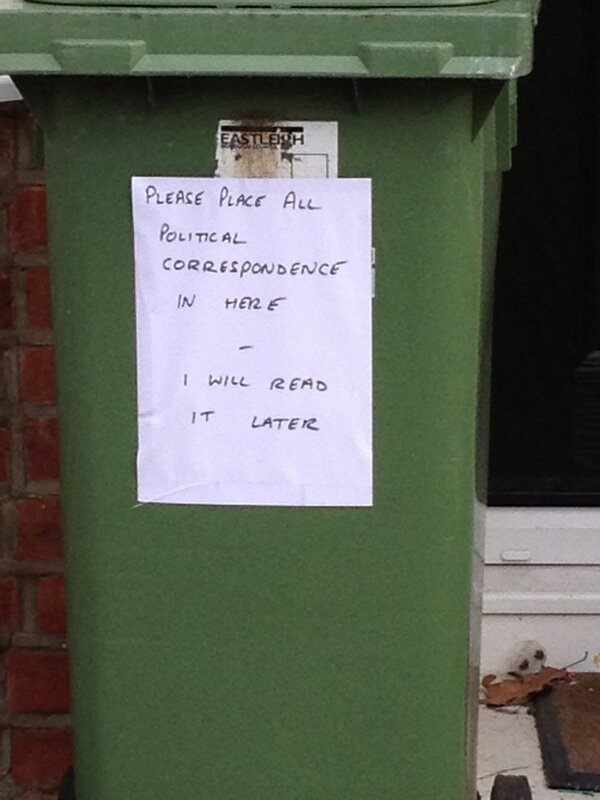 EASTLEIGH
PLEASE PLACE ALL
POLITICAL
CORRESPONDENCE
IN HERE
-
I WILL READ
IT LATER